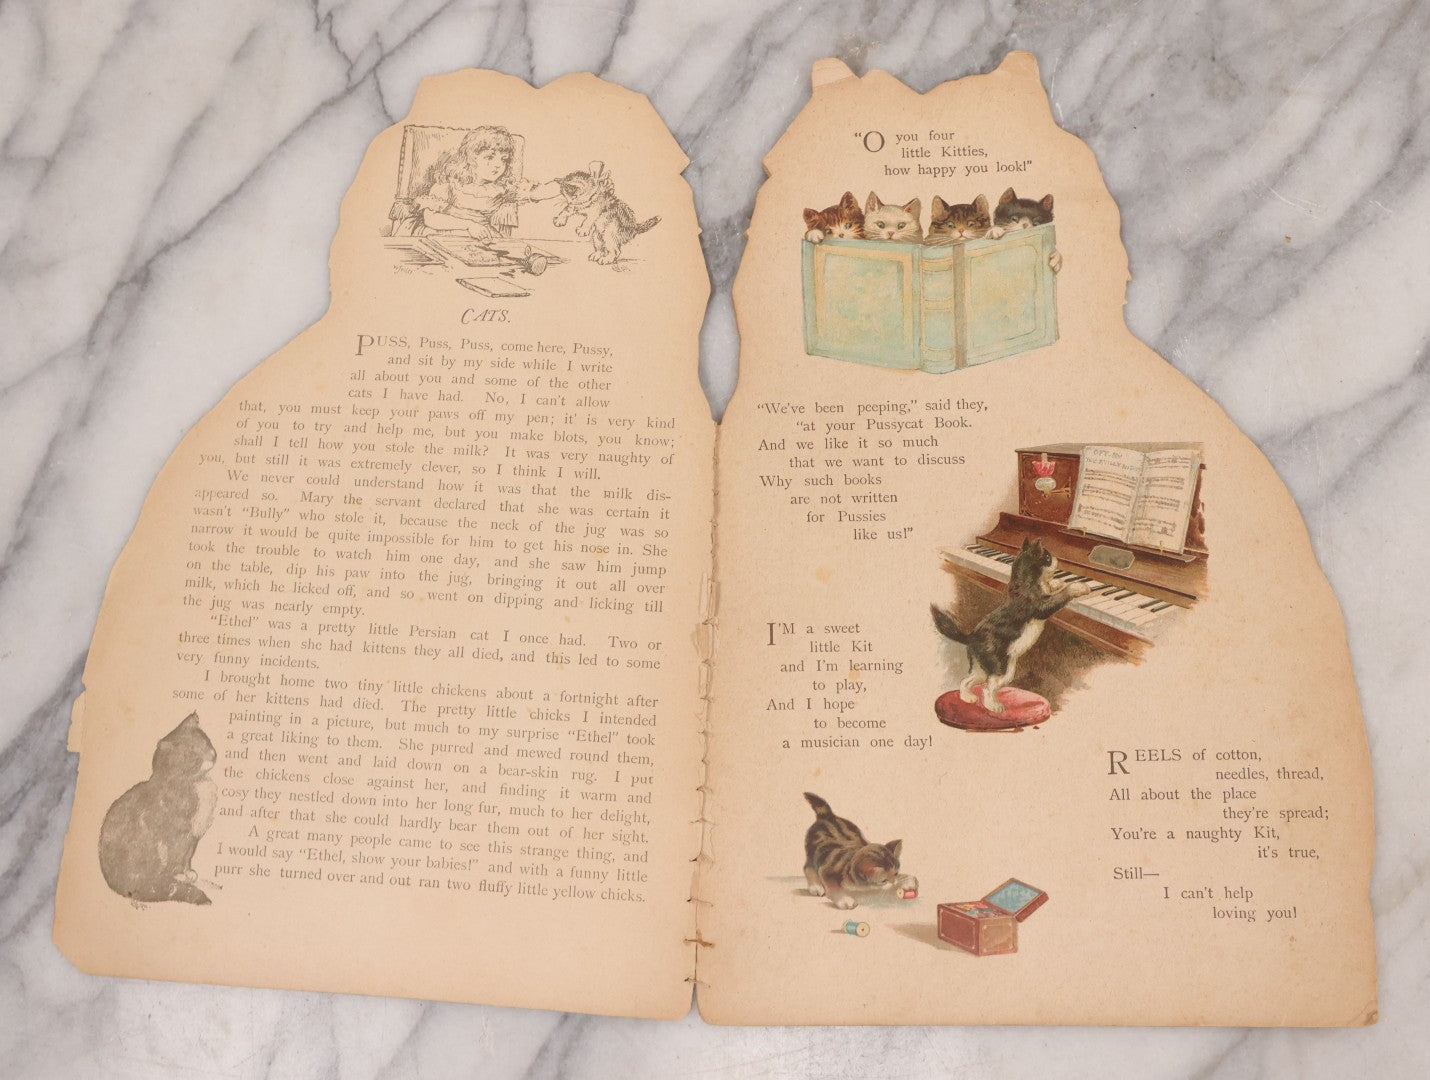 CATS.
PUSS, Puss, Puss, come here, Pussy,
and sit by my side while I write
all about you and some of the other
cats I have had. No, I can't allow
that, you must keep your paws off my pen; it' is very kind
of you to try and help me, but you make blots, you know;
shall I tell how you stole the milk? It was very naughty of
you, but still it was extremely clever, so I think I will.
We never could understand how it was that the milk dis-
appeared so. Mary the servant declared that she was certain it
wasn't "Bully" who stole it, because the neck of the jug was so
narrow it would be quite impossible for him to get his nose in. She
took the trouble to watch him one day, and she saw him jump
on the table, dip his paw into the jug, bringing it out all over
milk, which he licked off, and so went on dipping and licking till
the jug was nearly empty.
"Ethel" was a pretty little Persian cat I once had. Two or
three times when she had kittens they all died, and this led to some
very funny incidents.
I brought home two tiny little chickens about a fortnight after
some of her kittens had died. The pretty little chicks I intended
painting in a picture, but much to my surprise "Ethel" took
a great liking to them. She purred and mewed round them,
and then went and laid down on a bear-skin rug. I put
the chickens close against her, and finding it warm and
cosy they nestled down into her long fur, much to her delight,
and after that she could hardly bear them out of her sight.
A great many people came to see this strange thing, and
I would say "Ethel, show your babies!" and with a funny little
purr she turned over and out ran two fluffy little yellow chicks.
"O you four
little Kitties,
how happy you look!"
"We've been peeping," said they,
"at your Pussycat Book.
And we like it so much
that we want to discuss
Why such books
are not written
for Pussies
like us!"
I'M a sweet
little Kit
and I'm learning
to play,
And I hope
to become
a musician one day!
REELS of cotton,
needles, thread,
All about the place
they're spread;
You're a naughty Kit,
it's true,
Still—
I can't help
loving you!